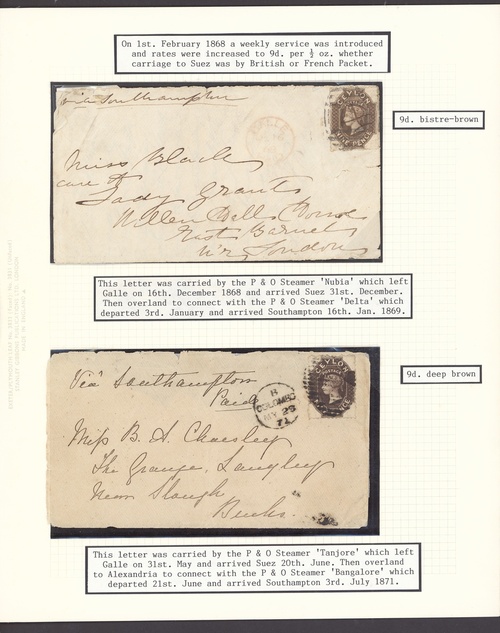 On 1st. February 1868 a weekly service was introduced
and rates were increased to 9d. per ½ oz. whether
carriage to Suez was by British or French Packet.
via Southampton
CEYLON
NINE PENCE
9d. bistre-brown
Miss Black
care of
Lady Grants
Dome
East Barnet
Nr. London
This letter was carried by the P & O Steamer 'Nubia' which left
Galle on 16th. December 1868 and arrived Suez 31st. December.
Then overland to connect with the P & O Steamer 'Delta' which
departed 3rd. January and arrived Southampton 16th. Jan. 1869.
9d. deep brown
Via Southampton
Paid
CEYLON
B
COLOMBO
MY 28
71
Miss B. A. Chaesley
The Grange, Langley
Near Slough
Bucks.
This letter was carried by the P & O Steamer 'Tanjore' which left
Galle on 31st. May and arrived Suez 20th. June. Then overland
to Alexandria to connect with the P & O Steamer 'Bangalore' which
departed 21st. June and arrived Southampton 3rd. July 1871.